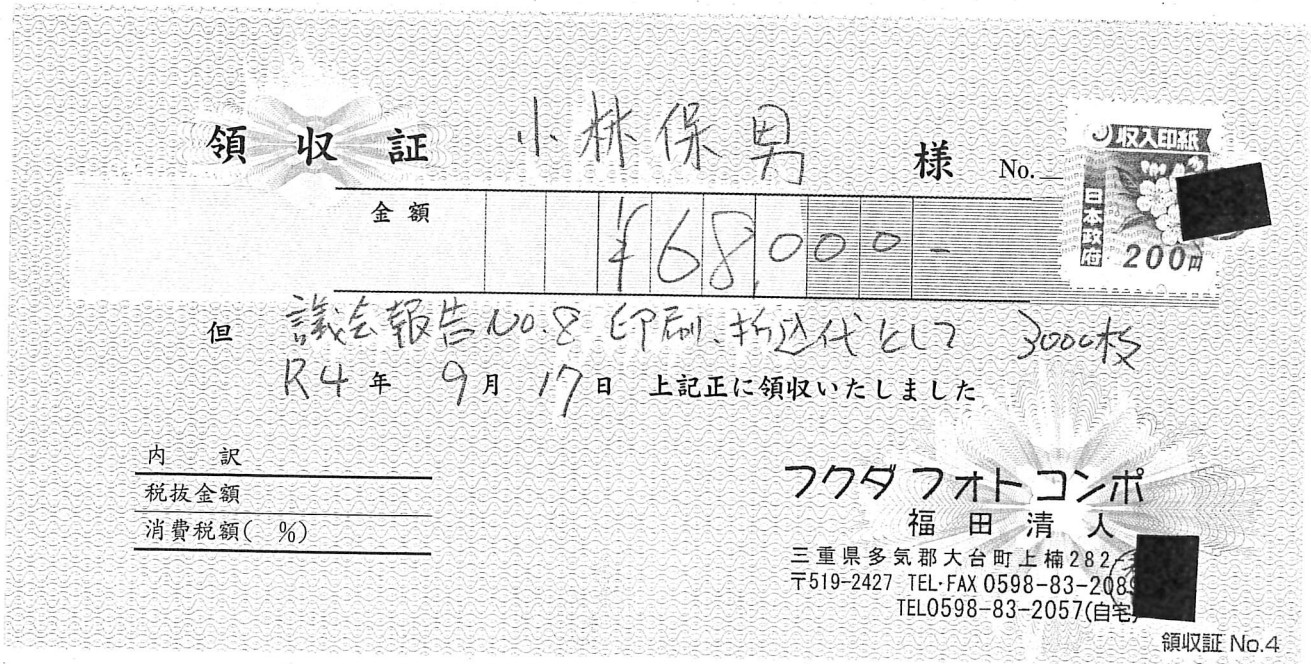 領収証 小林保男 様 No.
収入印紙
日本政府
200円
金額 ¥68,000-
但 議会報告No.8 印刷、折込代として 3000枚
R4年 9月 17日 上記正に領収いたしました
内 訳
税抜金額
消費税額( %)
フクダ フォト コンポ
福田清人
三重県多気郡大台町上楠282-
〒519-2427 TEL・FAX 0598-83-208
TEL0598-83-2057(自宅)
領収証 No.4